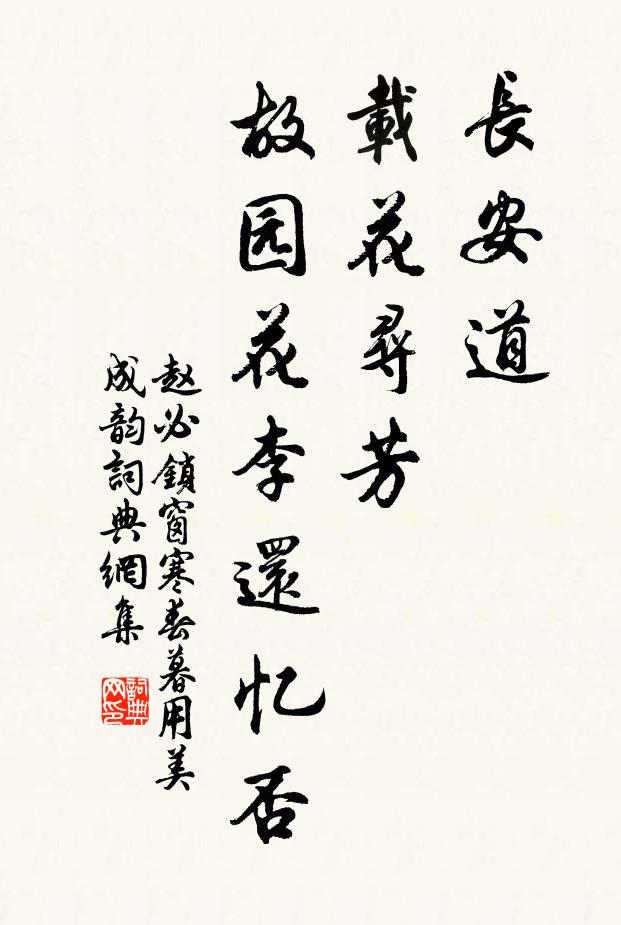 長安道
載花尋芳
故园花李還忆否
赵必鎖窗寒春暮用美
成韵詞典網集
詞典网印